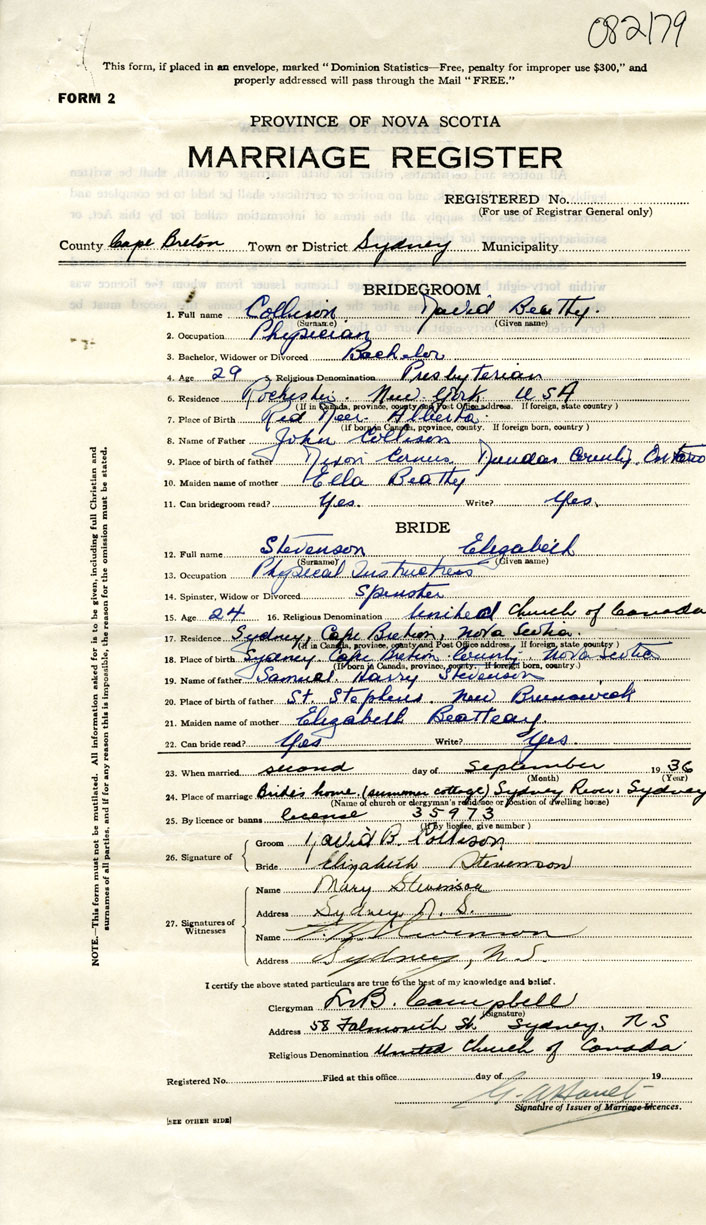 082179
This form, if placed in an envelope, marked "Dominion Statistics—Free, penalty for improper use $300," and
properly addressed will pass through the Mail "FREE."
FORM 2
PROVINCE OF NOVA SCOTIA
MARRIAGE REGISTER
REGISTERED No.
(For use of Registrar General only)
County Cape Breton Town or District Sydney Municipality
BRIDEGROOM
1. Full name Collison David Beatty.
(Surname) (Given name)
2. Occupation Physician
3. Bachelor, Widower or Divorced Bachelor
4. Age 29 5. Religious Denomination Presbyterian
6. Residence Rochester. New York USA
(If in Canada, province, county and Post Office address. If foreign, state country)
7. Place of Birth Red Deer. Alberta
(If born in Canada, province, county. If foreign born, country)
8. Name of Father John Collison
9. Place of birth of father Dixon Corners Dundas County, Ontario
10. Maiden name of mother Ella Beatty
11. Can bridegroom read? Yes. Write? Yes.
BRIDE
12. Full name Stevenson Elizabeth
(Surname) (Given name)
13. Occupation Physical Instructress
14. Spinster, Widow or Divorced Spinster
15. Age 24 16. Religious Denomination United Church of Canada
17. Residence Sydney, Cape Breton, Nova Scotia.
(If in Canada, province, county and Post Office address. If foreign, state country)
18. Place of birth Sydney Cape Breton County. Nova Scotia
(If born in Canada, province, county. If foreign born, country.)
19. Name of father Samuel Harry Stevenson
20. Place of birth of father St. Stephens. New Brunswick
21. Maiden name of mother Elizabeth Beatteay.
22. Can bride read? Yes Write? Yes.
23. When married second day of September 1936
(Month) (Year)
24. Place of marriage Bride's home. (summer cottage) Sydney River. Sydney
(Name of church or clergyman's residence or location of dwelling house)
25. By licence or banns license 35973
(If by license, give number)
26. Signature of
Groom David B. Collison
Bride Elizabeth Stevenson
27. Signatures of
Witnesses
Name Mary Stevenson
Address Sydney N. S.
Name Stevenson
Address Sydney, N.S.
I certify the above stated particulars are true to the best of my knowledge and belief.
Clergyman Campbell
(Signature)
Address 58 Falmouth St. Sydney, N S
Religious Denomination United Church of Canada
Registered No. Filed at this office day of 19
Signature of Issuer of Marriage Licences.
[SEE OTHER SIDE]
NOTE.—This form must not be mutilated. All information asked for is to be given, including full Christian and
surnames of all parties, and if for any reason this is impossible, the reason for the omission must be stated.